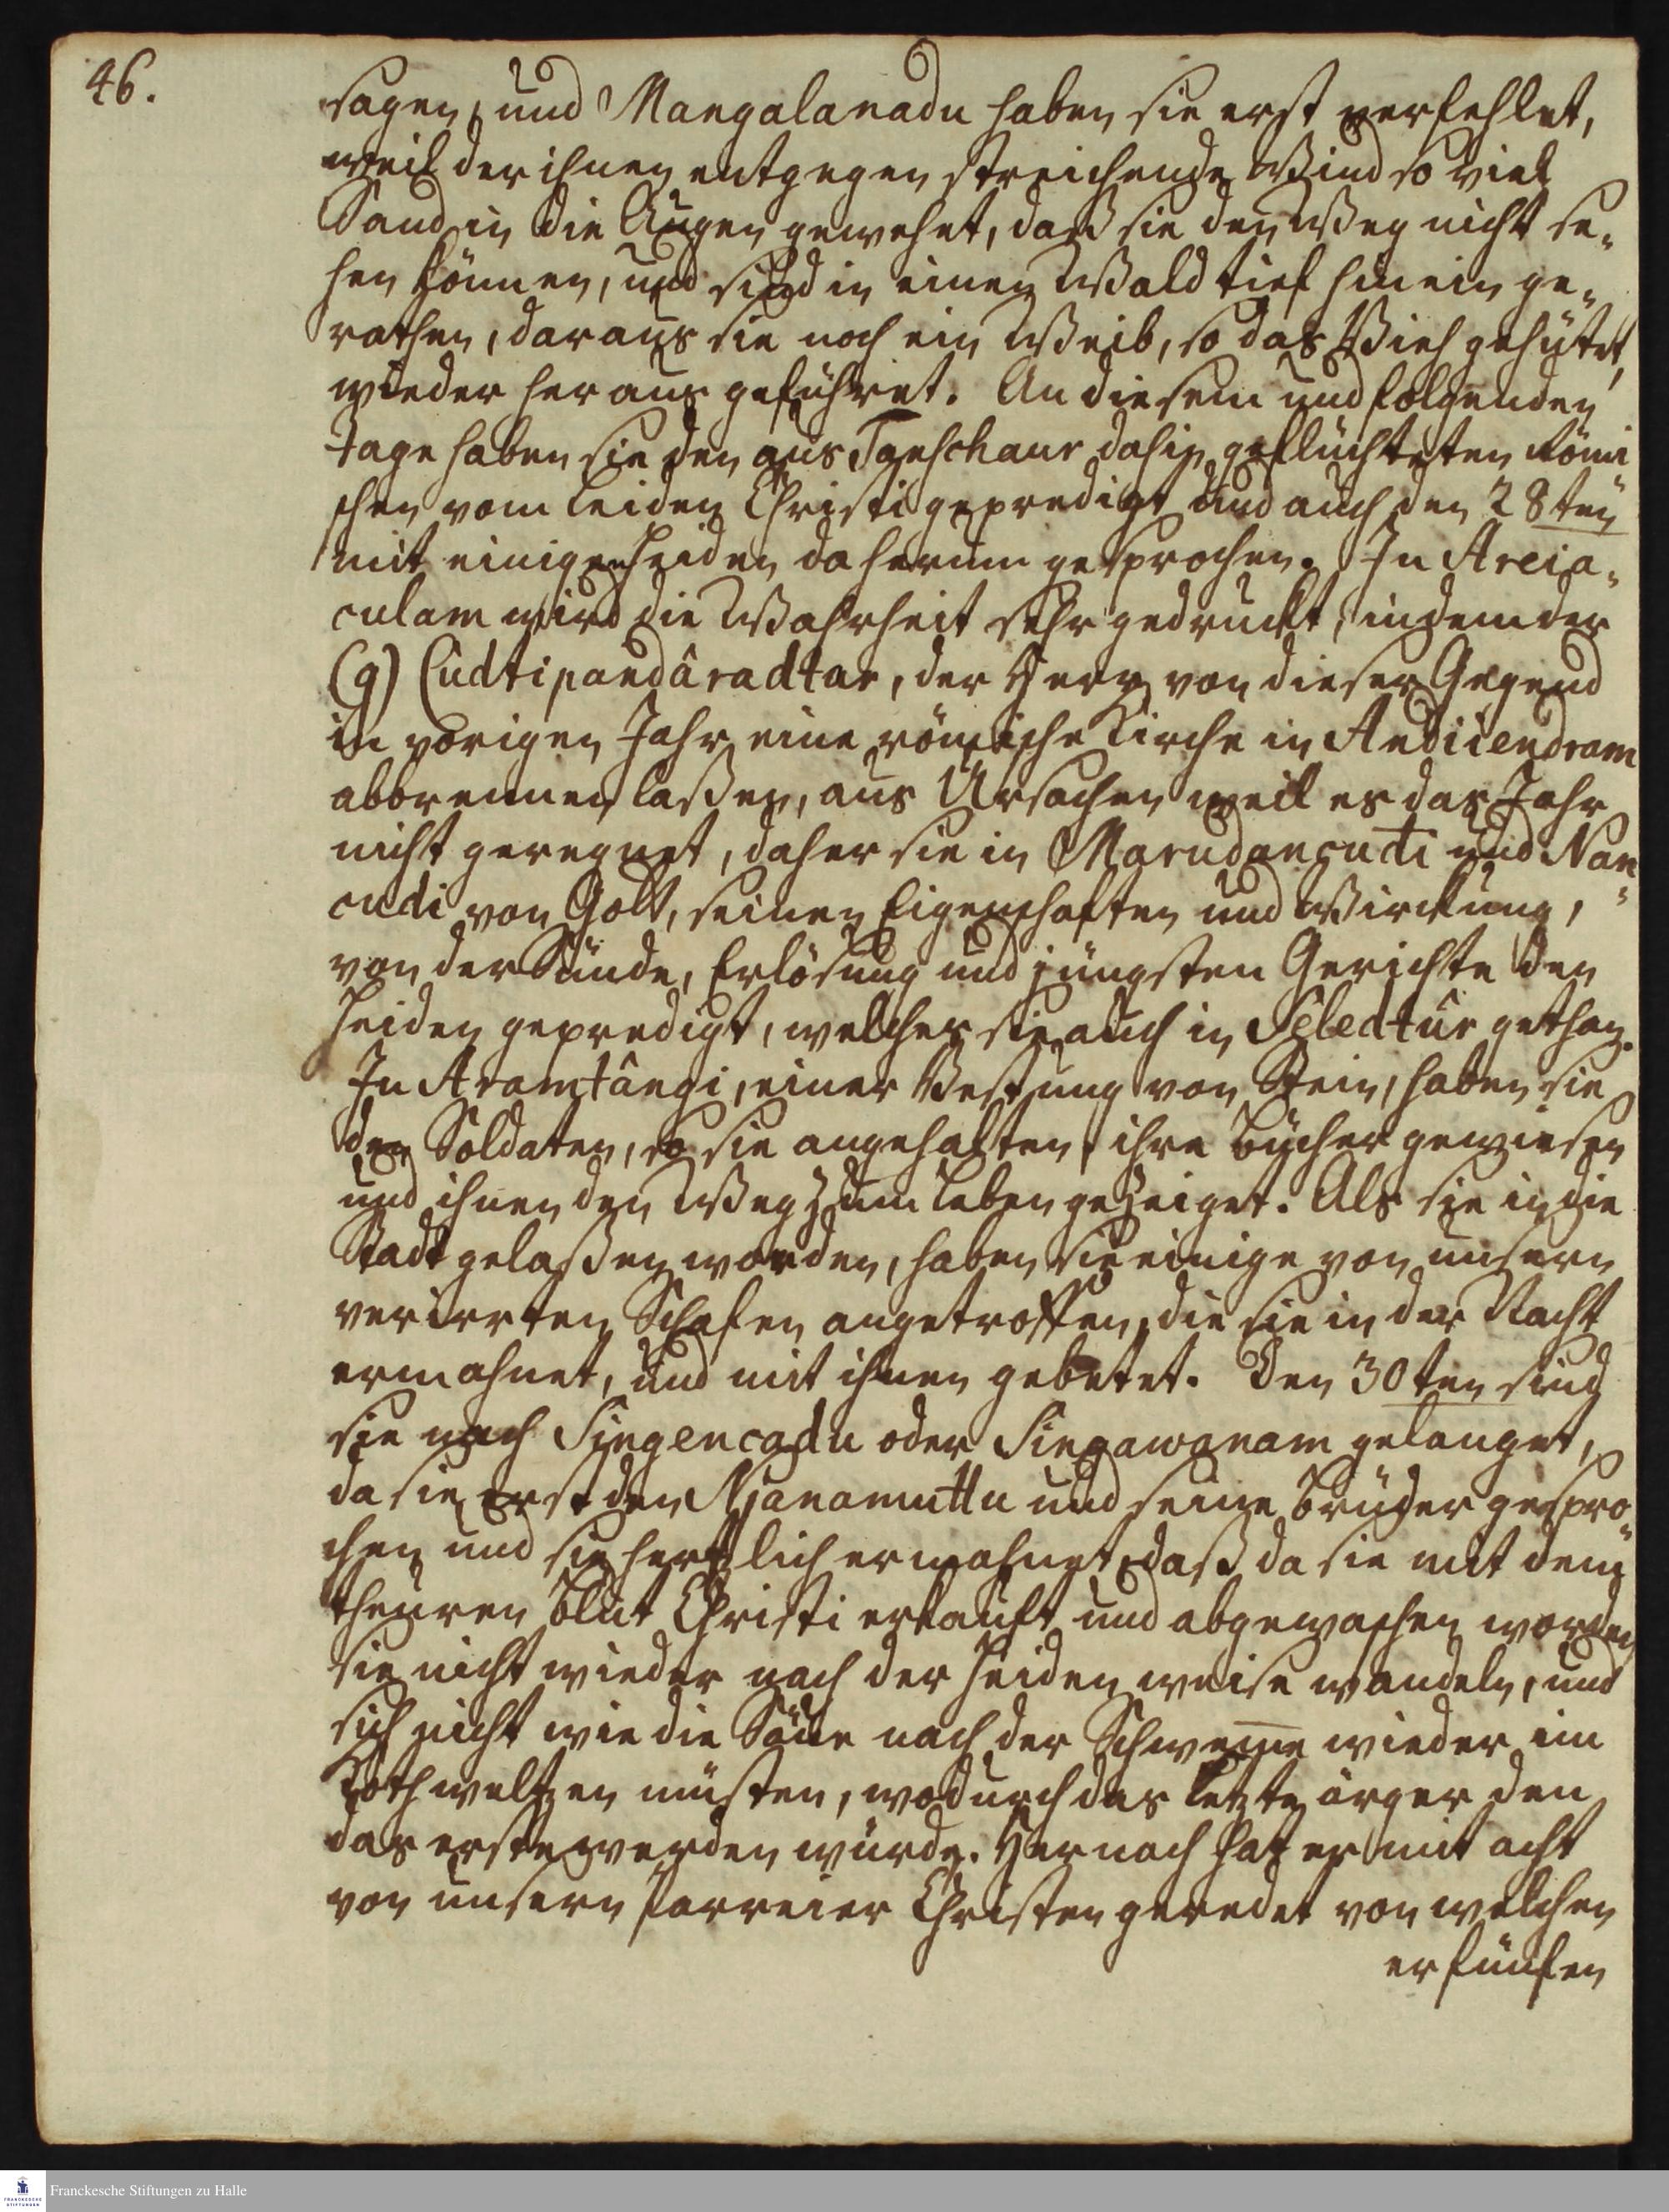 46.
sagen, und Mangalanadu haben sie erst verfehlet,
weil der ihnen entgegen streichende Wind so viel
Sand in die Augen gewehet, daß sie den Weg nicht se-
hen können, und sind in einen Wald tief hinein ge-
rathen, daraus sie noch ein Weib, so das Vieh gehütet,
wieder heraus geführet. An diesem und folgenden
Tage haben sie den aus Tanschaur dahin geflüchteten Römi
schen vom Leiden Christi gepredigt und auch den 28ten
mit einigen Heiden da herum gesprochen. In Areia-
culam wird die Wahrheit sehr gedruckt, indem der
(g) Cudtipandâradtar, der Herr von dieser Gegend
im vorigen Jahr eine römische Kirche in Andiiendram
abbrennen laßen, aus Ursachen weil es das Jahr
nicht geregnet, daher sie in Marudancudi und Nan-
cudi von Gott, seinen Eigenschaften und Wirckung,
von der Sünde, Erlösung und jüngsten Gerichte den
Heiden gepredigt, welches sie auch in Seledtûr gethan.
In Aramtângi, einer Vestung von Stein, haben sie
den Soldaten, so sie angehalten, ihre Bücher gewiesen
und ihnen den Weg zum Leben gezeiget. Als sie in die
Stadt gelaßen worden, haben sie einige von unsern
verirrten Schafen angetroffen, die sie in der Nacht
ermahnet, und mit ihnen gebetet. Den 30ten sind
sie nach Singencadu oder Singawanam gelanget,
da sie erst den Njanamuttu und seine Brüder gespro-
chen und sie hertzlich ermahnet, daß da sie mit dem
theuren Blut Christi erkauft und abgewaschen worden
sie nicht wieder nach der Heiden weise wandeln, und
sich nicht wie die Säue nach der Schwem̄e wieder im
Koth weltzen müsten, wodurch das letzte ärger den
das erste werden würde. Hernach hat er mit acht
von unsern Parreier Christen geredet von welchen
er fünfen
Franckesche Stiftungen zu Halle
FRANCKESCHE
STIFTUNGEN